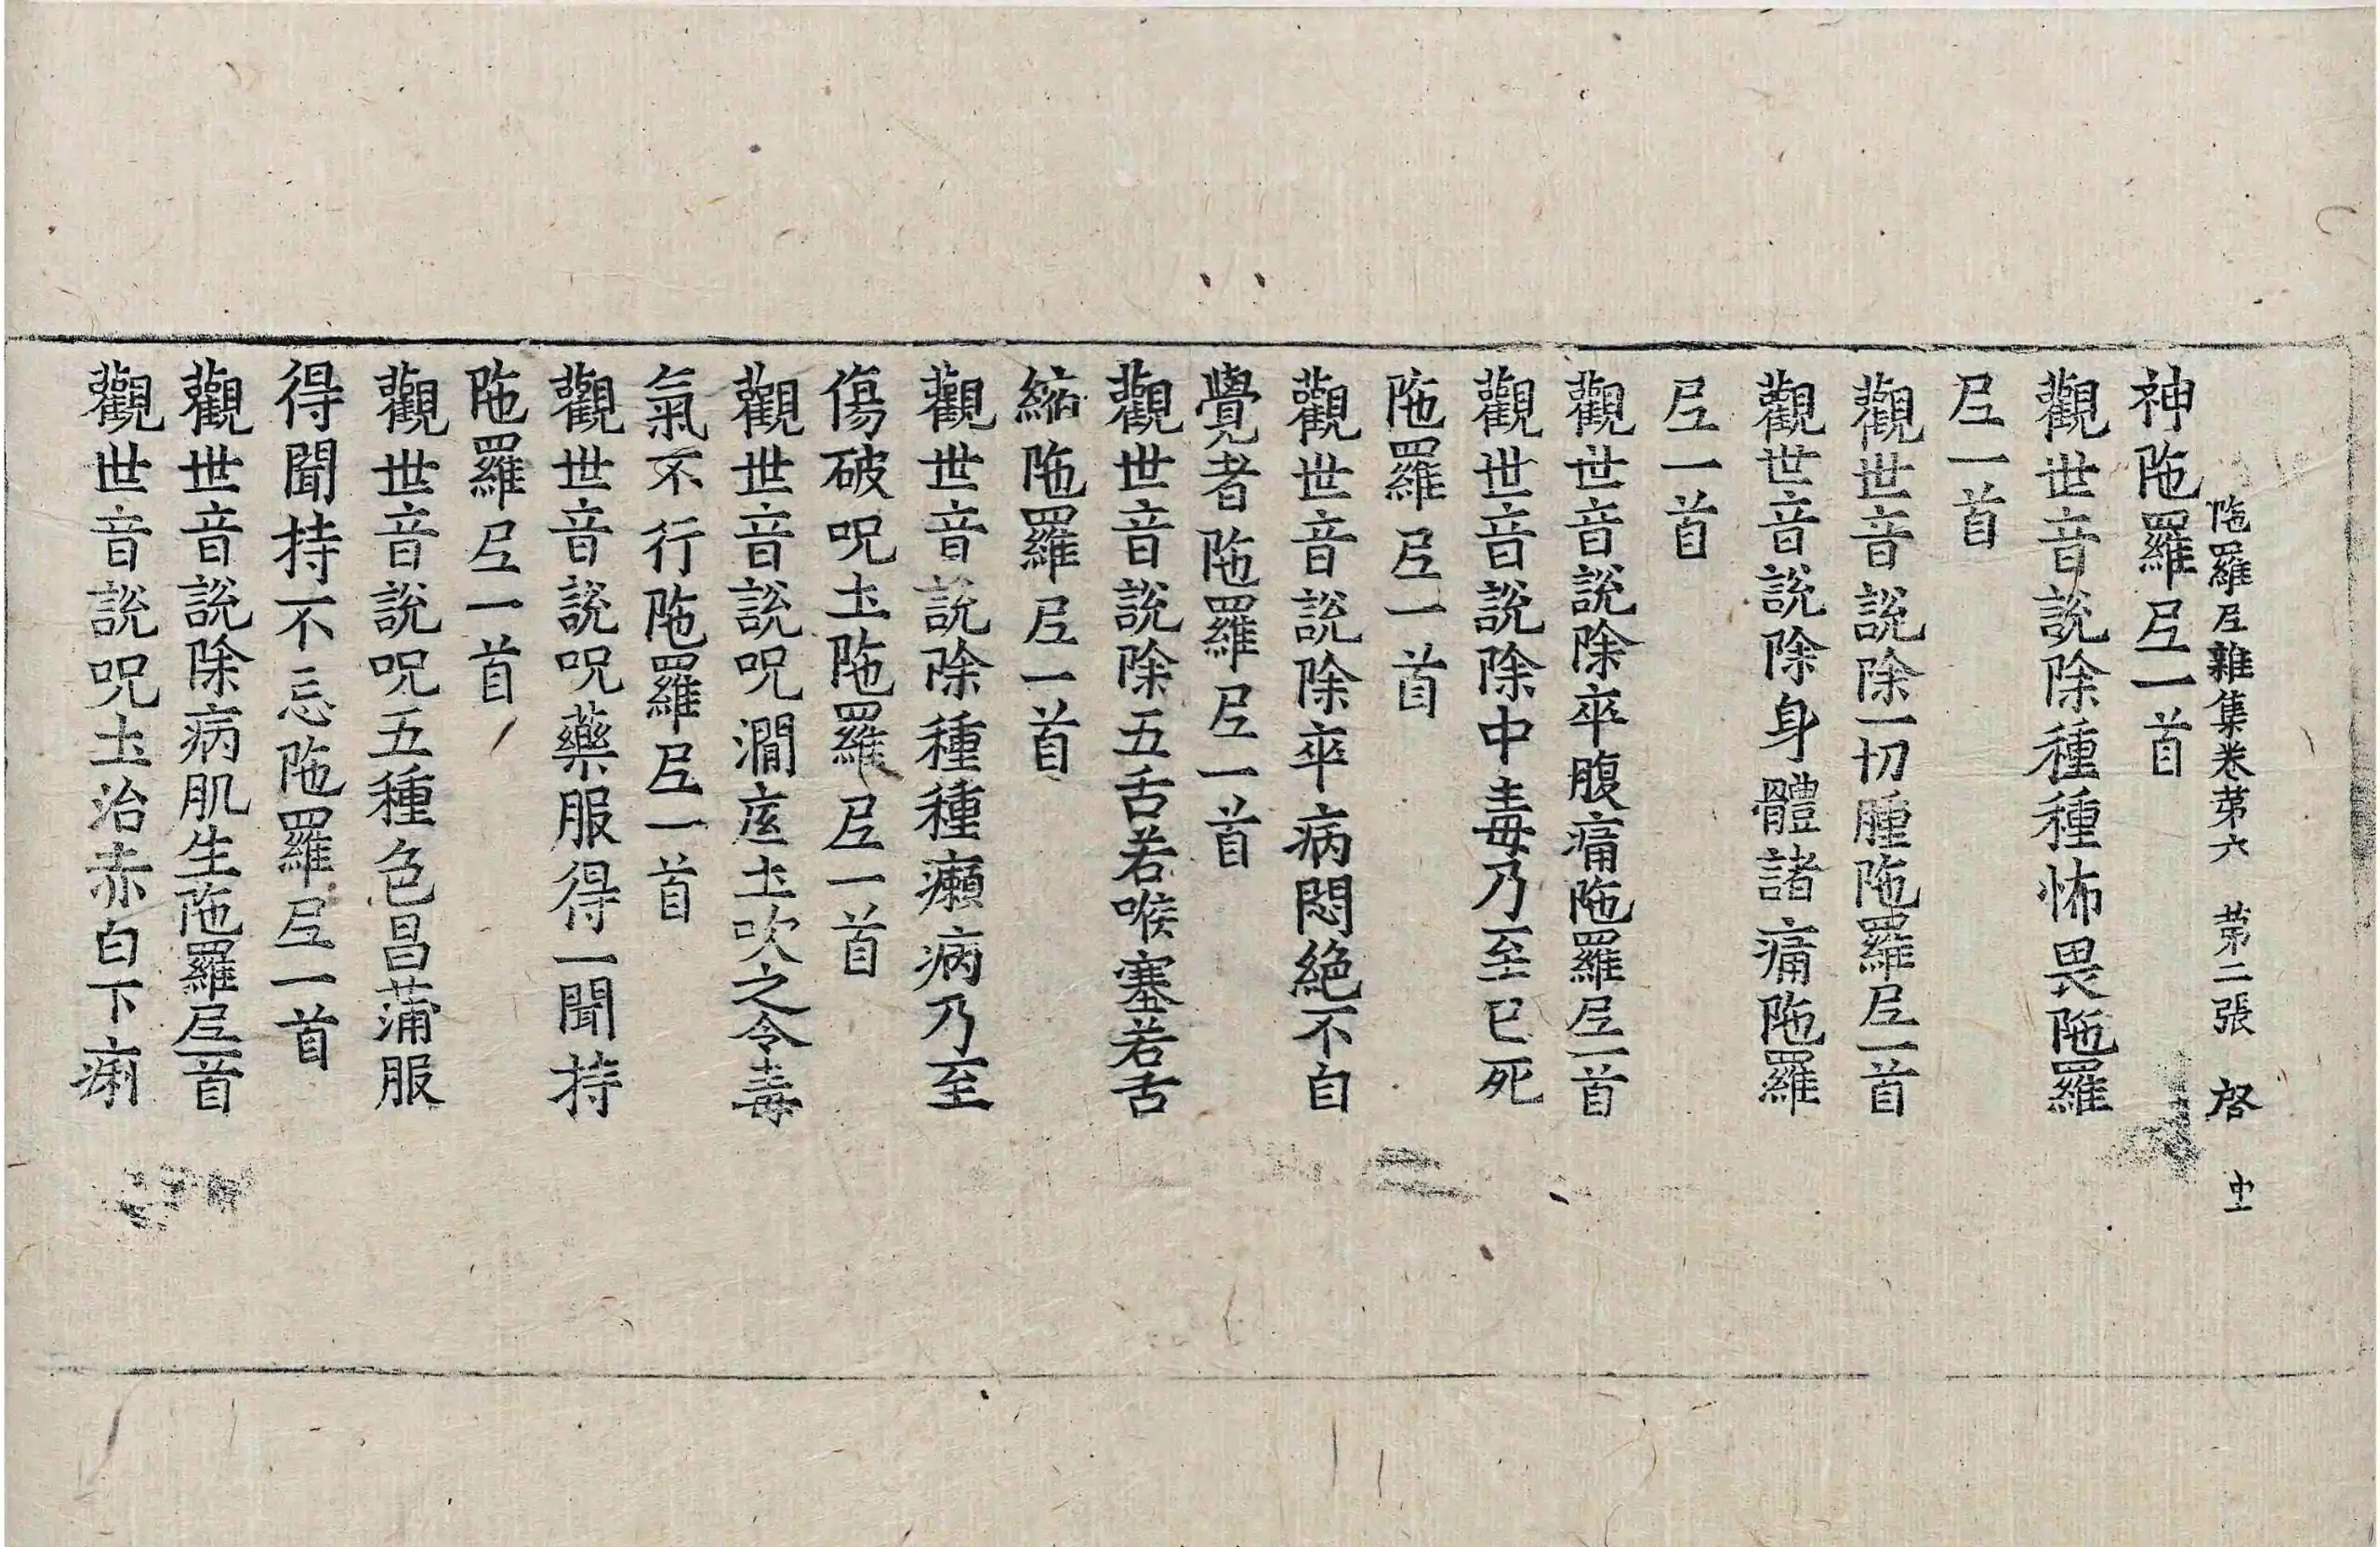 陁羅尼雜集卷苐六 苐二張 啓
神陁羅尼一首
觀世音說除種種怖畏陁羅
尼一首
觀世音說除一切腫陁羅尼一首
觀世音說除身體諸痛陁羅
尼一首
觀世音說除卒腹痛陁羅尼一首
觀世音說除中毒乃至已死
陁羅尼一首
觀世音說除卒病悶絕不自
覺者陁羅尼一首
觀世音說除五舌若喉塞若舌
縮陁羅尼一首
觀世音說除種種癩病乃至
傷破呪土陁羅尼一首
觀世音說呪澗底土吹之令毒
氣不行陁羅尼一首
觀世音說呪藥服得一聞持
陁羅尼一首
觀世音說呪五種色昌蒲服
得聞持不忘陁羅尼一首
觀世音說除病肌生陁羅尼一首
觀世音說呪土治赤白下痢